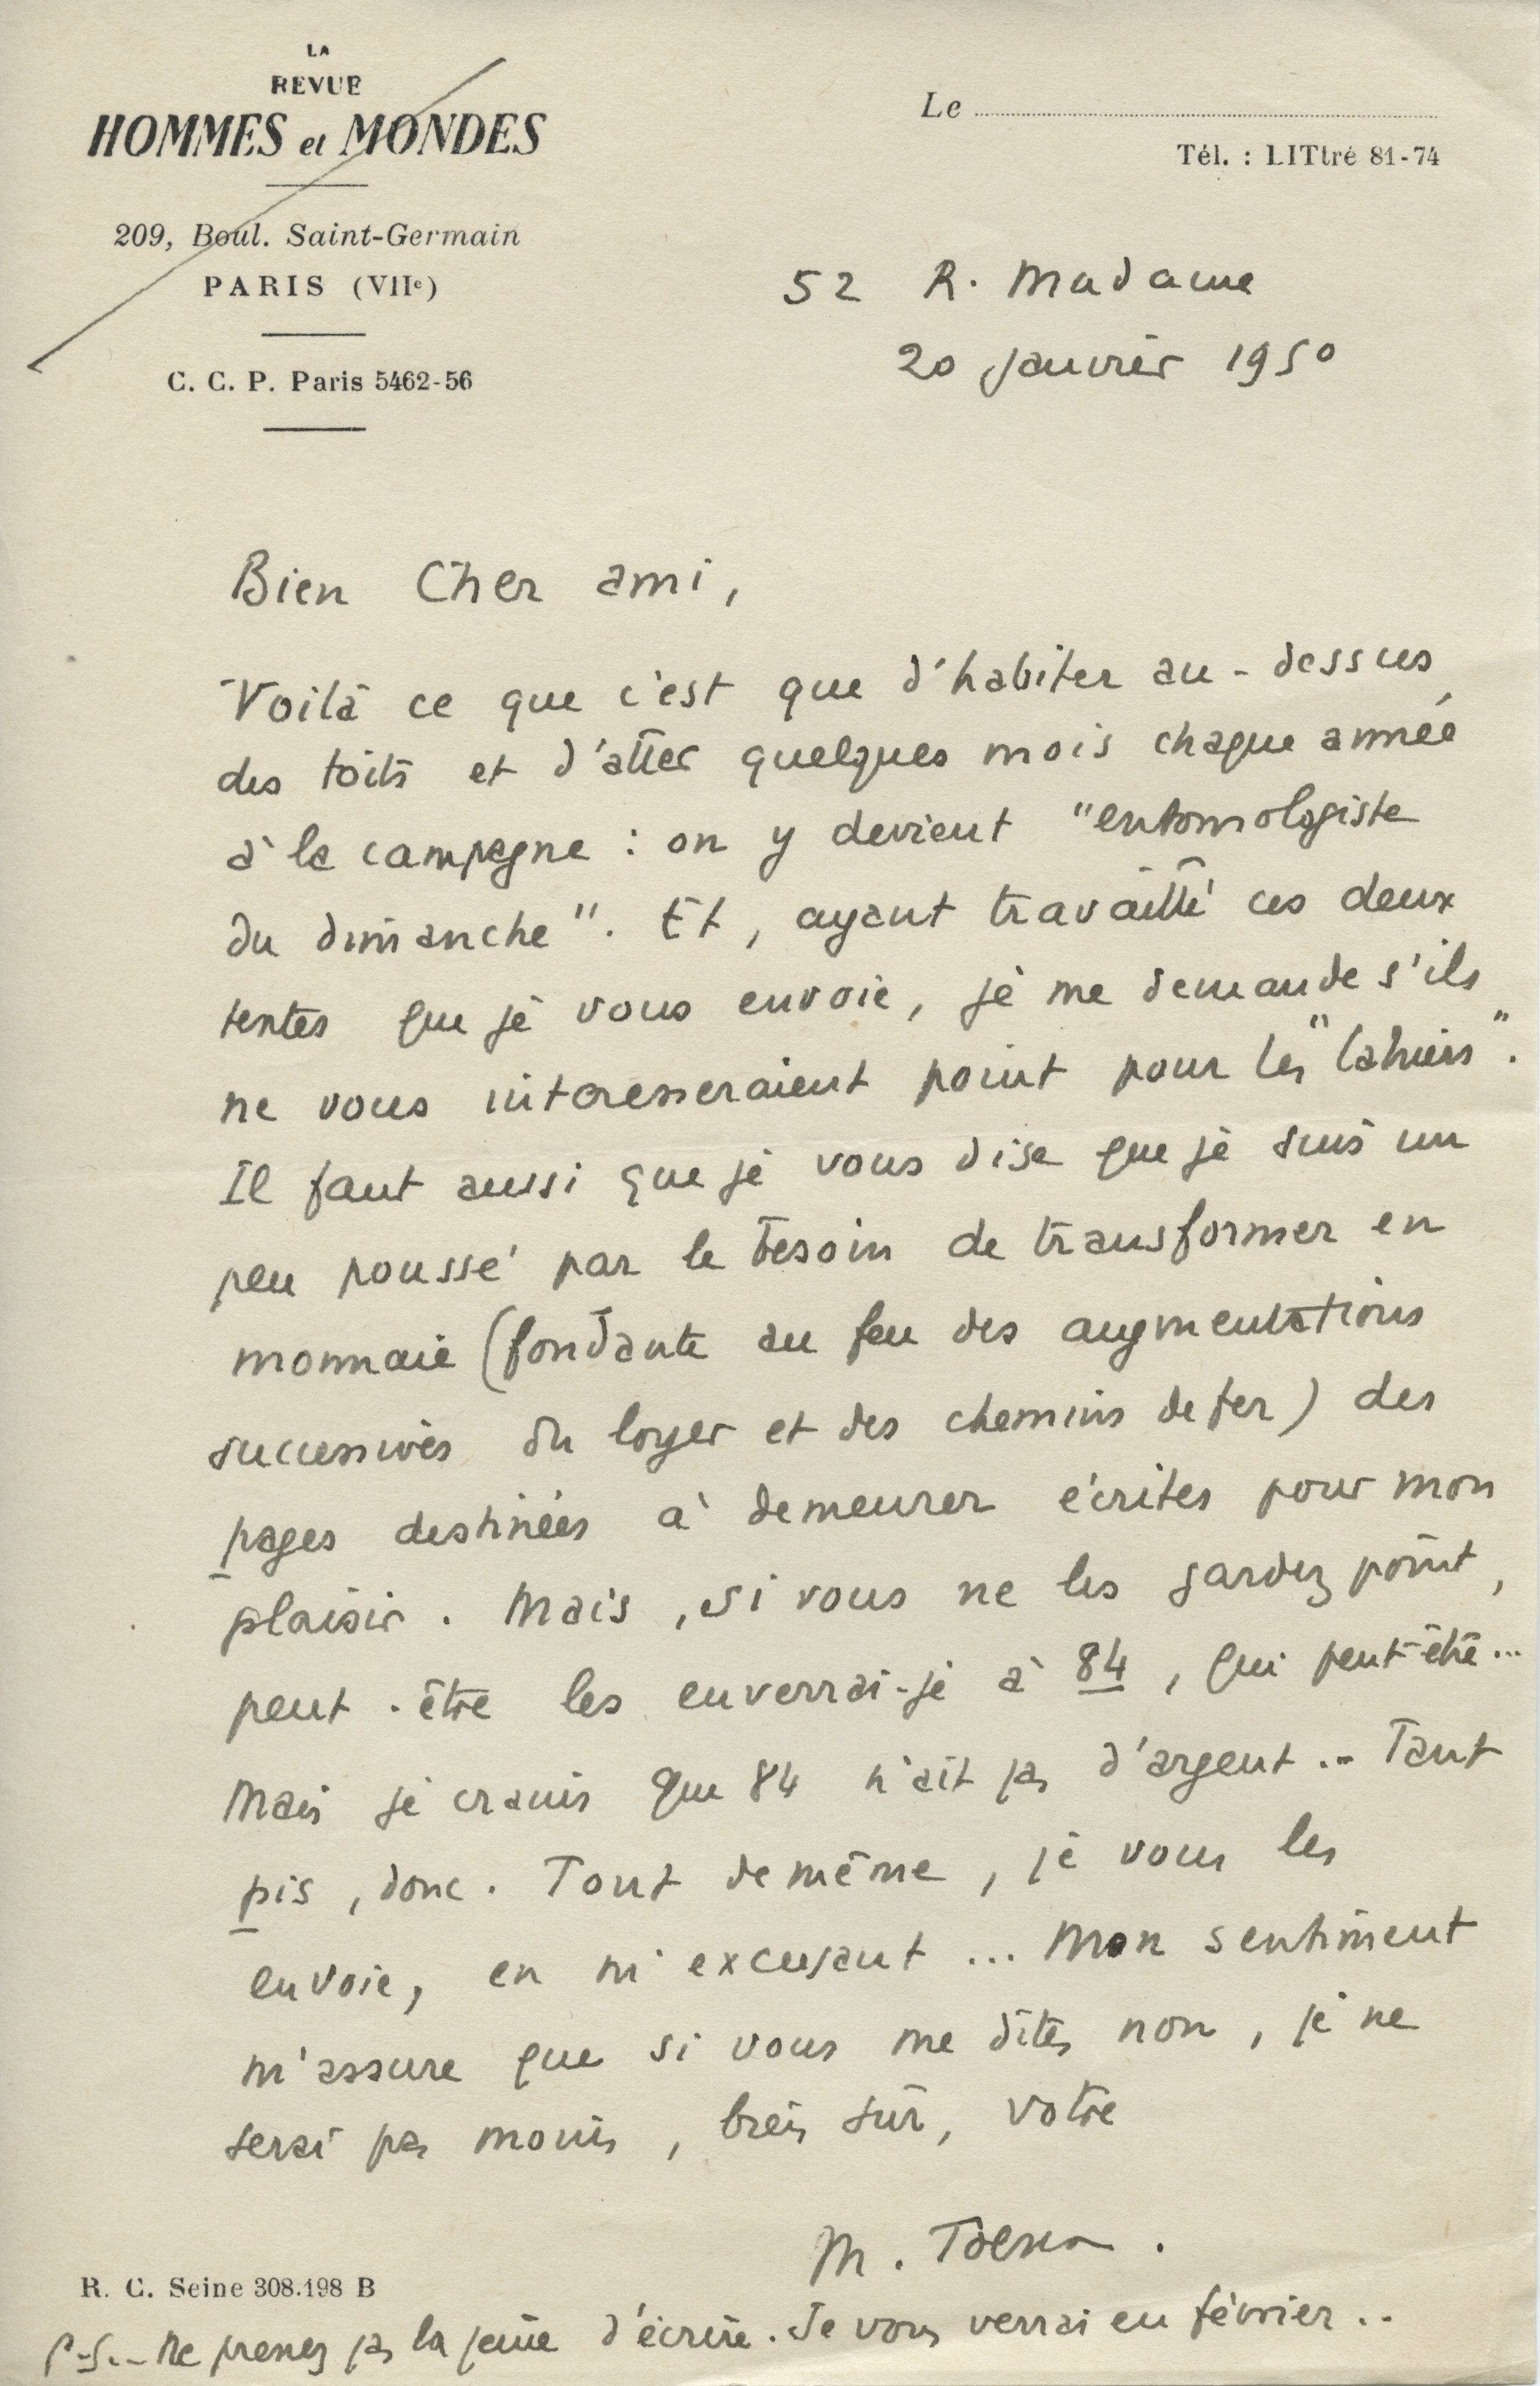 LA
REVUE
HOMMES et MONDES
209, Boul. Saint-Germain
PARIS (VIIe)
C. C. P. Paris 5462-56
Le
Tél. : LITtré 81-74
52 R. Madame
20 janvier 1950
Bien Cher ami,
Voilà ce que c'est que d'habiter au-dessus
des toits et d'aller quelques mois chaque année
à la campagne : on y devient "entomologiste
du dimanche". Et, ayant travaillé ces deux
textes que je vous envoie, je me demande s'ils
ne vous intéresseraient point pour les "Cahiers".
Il faut aussi que je vous dise que je suis un
peu poussé par le besoin de transformer en
monnaie (fondante au feu des augmentations
successives du loyer et des chemins de fer) des
pages destinées à demeurer écrites pour mon
plaisir. Mais, si vous ne les gardez point,
peut-être les enverrai-je à 84, qui peut-être...
Mais je crains que 84 n'ait pas d'argent... Tant
pis, donc. Tout de même, je vous les
envoie, en m'excusant... Mon sentiment
m'assure que si vous me dites non, je ne
serai pas moins, bien sûr, votre
M. Toesca.
R. C. Seine 308.198 B
P.S.- Ne prenez pas la peine d'écrire. Je vous verrai en février..